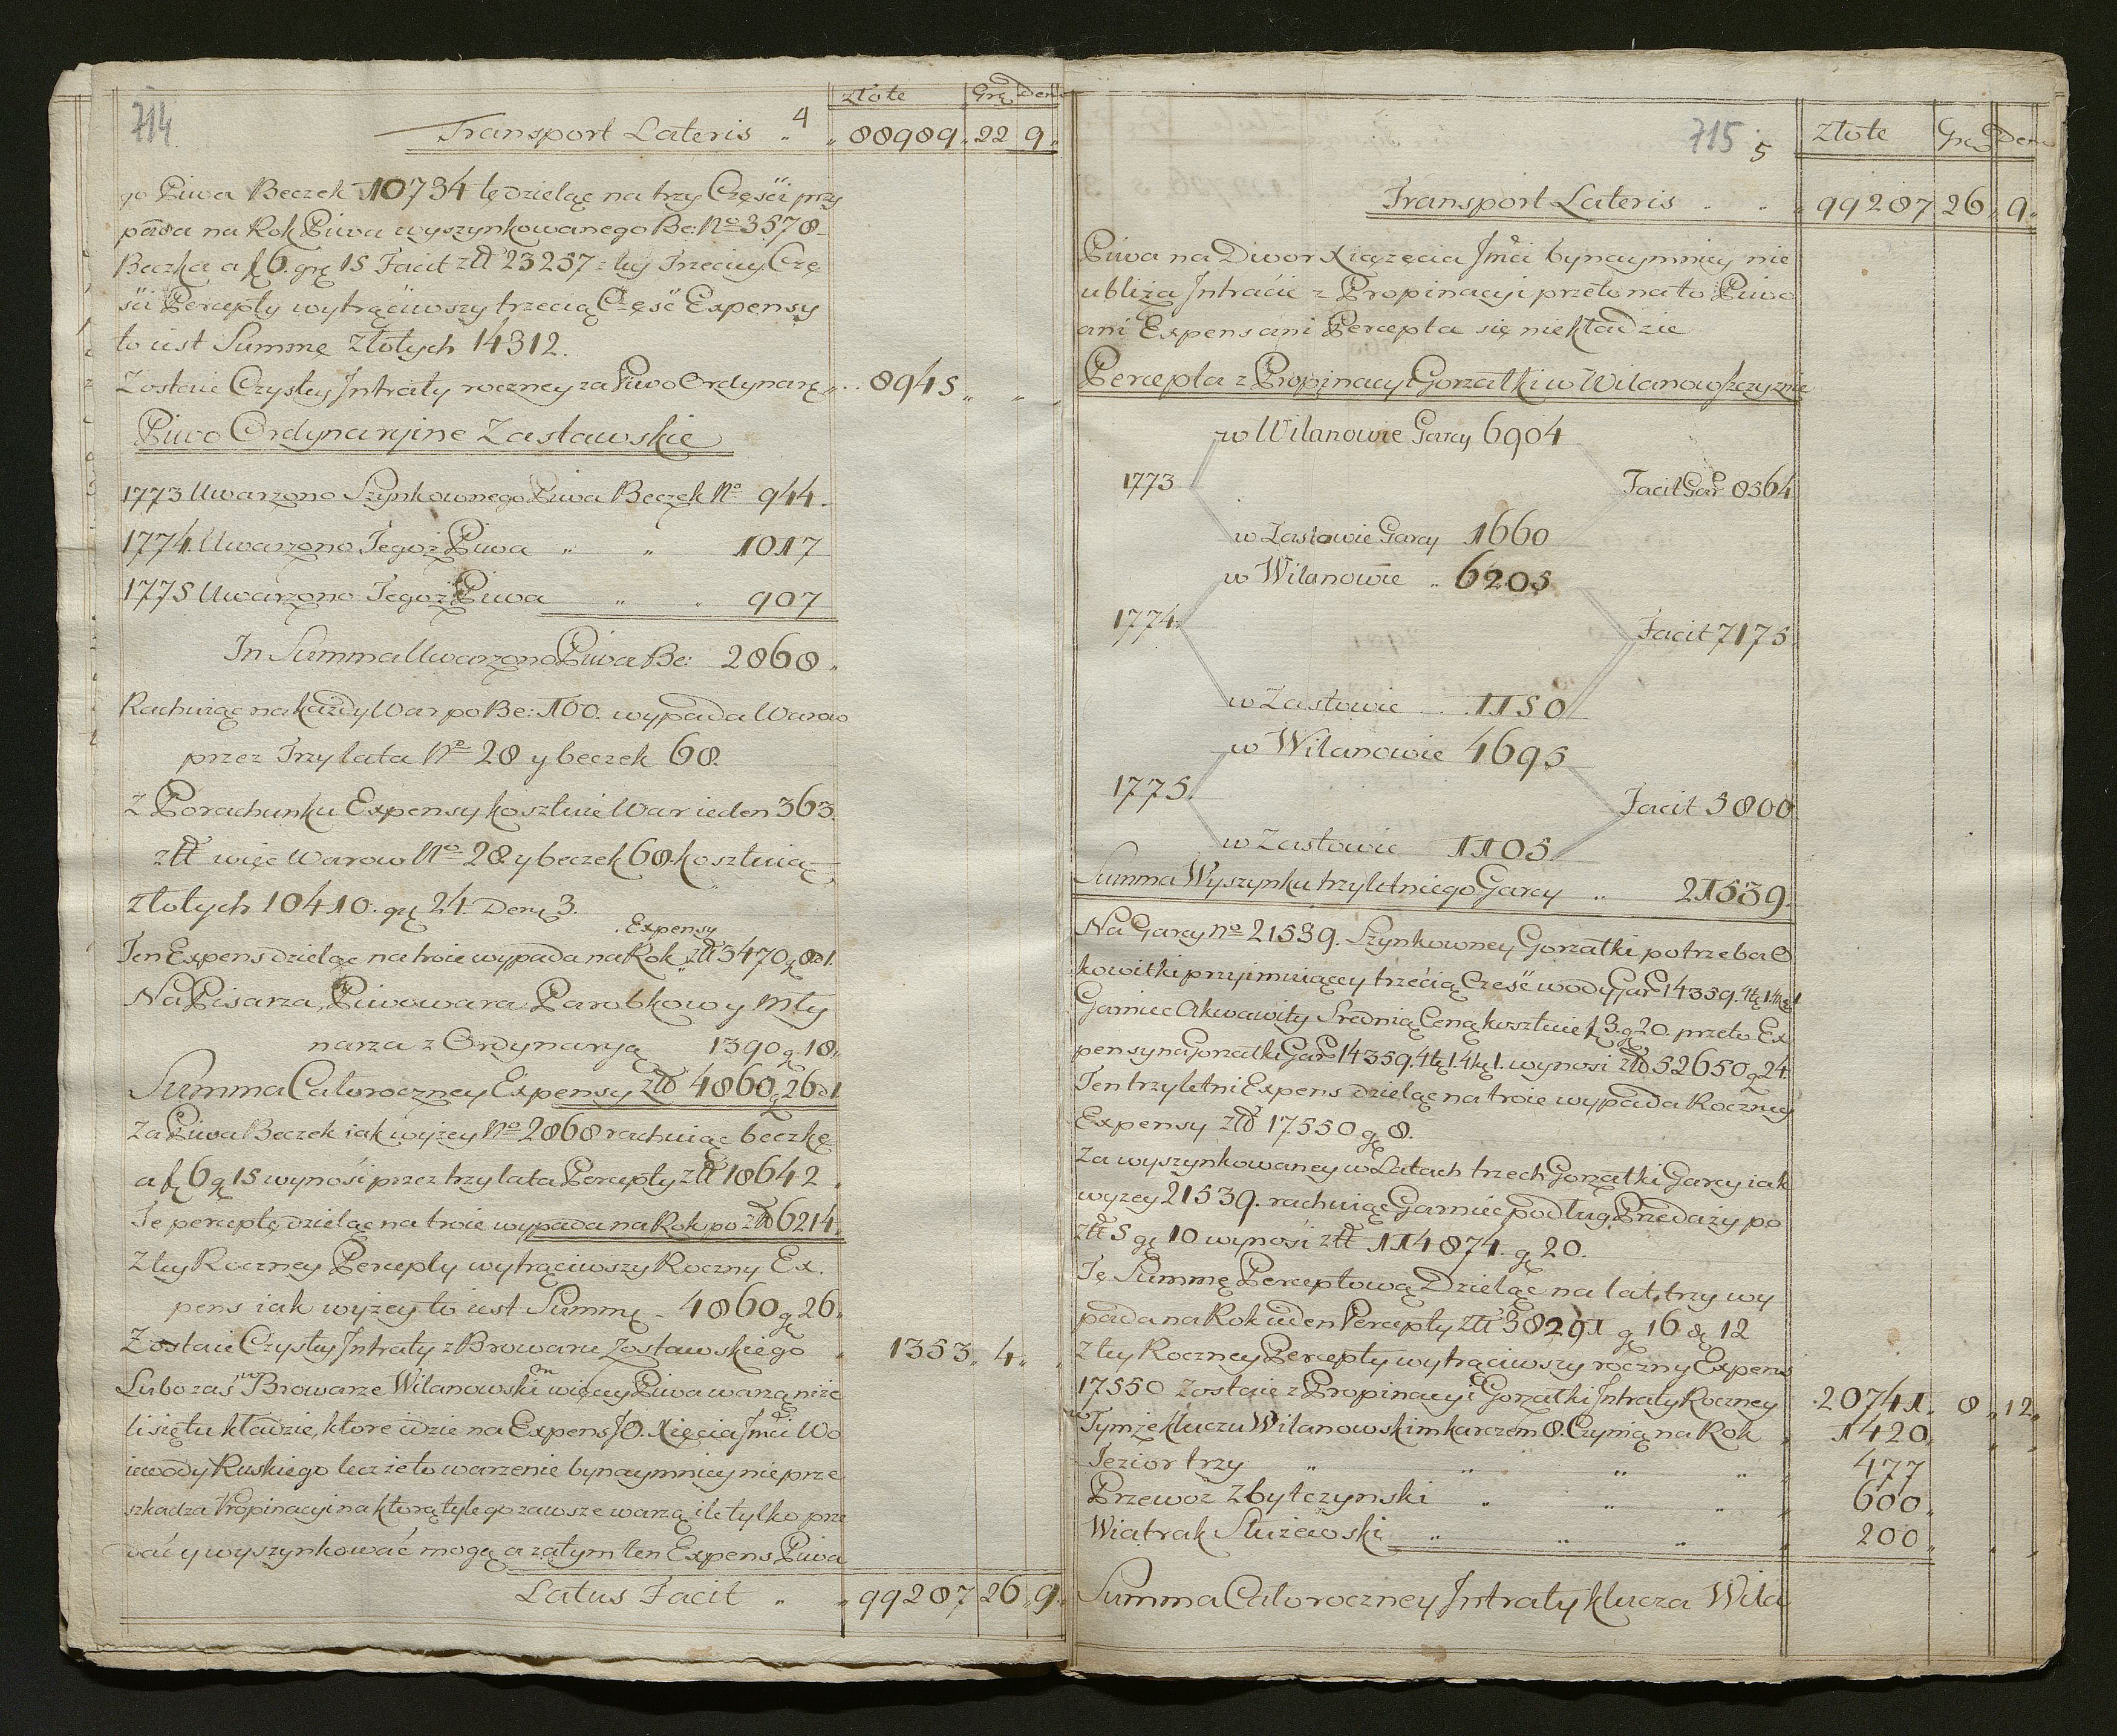 714
złote Grę Den
Transport Lateris „ 4 „ 88989„ 22 9„
go Piwa Beczek 10734 tę dzieląc na trzy Części przy
pada na Rok Piwa wyszynkowanego Be: No 3578
Beczka a f 6. grę 15 Facit złł 23257 z tey Trzeciey Czę
ści Percepty wytrąciwszy trzecią Część Expensy
to iest Summę Złotych 14312.
Zostaie Czystey Intraty roczney za Piwo Ordynarę „ 8945 „ „ „
Piwo Ordynaryine Zastawskie
1773 Uwarzono Szynkownego Piwa Beczek No 944.
1774. Uwarzono Tegoż Piwa „ „ 1017
1775 Uwarzono Tegoż Piwa „ „ 907
In Summa Uwarzono Piwa Be: 2868 „
Rachuiąc na każdy War po Be: 100. wypada Warow
przez Trzy lata No 28 y beczek 68.
Z Porachunku Expensy kosztuie War ieden 363.
złł więc Warow No 28 y beczek 68. kosztuią
Złotych 10410. grę 24. Denę 3.
Expensy
Ten Expens dzieląc na troie wypada na Rok „ złł 3470 g 8 d 1.
Na Pisarza, Piwowara Parobkow y Mły
narza z Ordynaryą 1390 g 18„
Summa Caloroczney Expensy złł 4860 g 26 d 1
Za Piwa Beczek iak wyżey No 2868 rachuiąc beczkę
a f 6 g 15 wynosi przez trzy lata Percepty złł 18642.
Te perceptę dzieląc na troie wypada na Rok po złł 6214.
Z tey Roczney Percepty wytrąciwszy Roczny Ex.
pens iak wyżey to iest Summę - 4860 g 26„
Zostaie Czystey Intraty z Browaru Zastawskiego „ 1353„ 4„ „
Lubo zaś w Browarze Wilanowskim więcey Piwa warzą niże
li się tu kładzie, ktore idzie na Expens JO. Xięcia Jmci Wo
iewody Ruskiego lecz ie to warzenie bynaymniey nie prze
szkadza Propinacyi na ktorą tyle go zawsze warzą ile tylko prze
dać y wyszynkować mogą a zatym ten Expens Piwa
Latus Facit „ „ 99287 26„ 9„
715 5
Złote Grę Den
Transport Lateris „ „ „ 99287 26„ 9„
Piwa na Dwor Xiążęcia Jmci bynaymniey nie
ubliża Intracie z Propinacyi przeto na to Piwo
ani Expens ani Percepta się nie kładzie
Percepta z Propinacyi Gorzałki w Wilanowszczyznie
w Wilanowie Garcy 6904
1773 Facit Gar 8564
w Zastowie Garcy 1660
w Wilanowie „ 6205
1774. Facit 7175
w Zastowie 1150
w Wilanowie 4695
1775. Facit 5800
w Zastowie 1105
Summa Wyszynku trzyletniego Garcy „ 21539.
Na Garcy No 21539. Szynkowney Gorzałki potrzeba O
kowitki przyimuiący trzecią Część wody Gar 14359.
Garniec Akwawity Srednią Ceną kosztuie f 3. g 20. przeto Ex
pensy na Gorzałki Gar 14359. wynosi złł 52650 g 24.
Ten trzyletni Expens dzieląc na troie wypada Roczney
Expensy złł 17550 g 8.
Za wyszynkowaney w Latach trzech Gorzałki Garcy iak
wyżey 21539. rachuiąc Garniec podług Przedaży po
złł 5 gę 10 wynosi złł 114874. g 20.
Tę Summę Perceptową Dzieląc na lat trzy wy
pada na Rok ieden Percepty złł 38291 g 16 dę 12
Z tey Roczney Percepty wytrąciwszy roczny Expens
17550 Zostaie z Propinacyi Gorzałki Intraty Roczney 20741„ 8„ 12„
w Tymże kluczu Wilanowskim karczem 8. Czynią na Rok „ 1420„ „ „
Jezior trzy „ „ „ „ 477
Przewoz Zbytczynski „ „ „ 600„
Wiatrak Służewski „ „ „ 200„
Summa Caloroczney Intraty klucza Wila